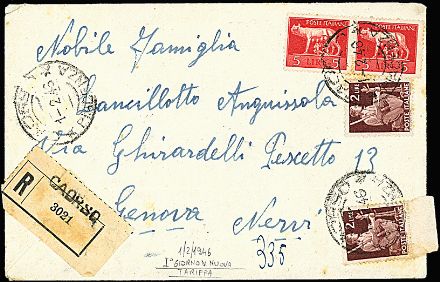 Nobile Famiglia
POSTE ITALIANE
5 LIRE 5
POSTE ITALIANE
5 5
Lancillotto Anguissola
2 LIRE
POSTE ITALIANE
Via Ghirardelli Pescetto 13
R CAORSO
3021
Genova Nervi
2 LIRE
POSTE ITALIANE
1/2/1946
I° GIORNO NUOVA
TARIFFA
335